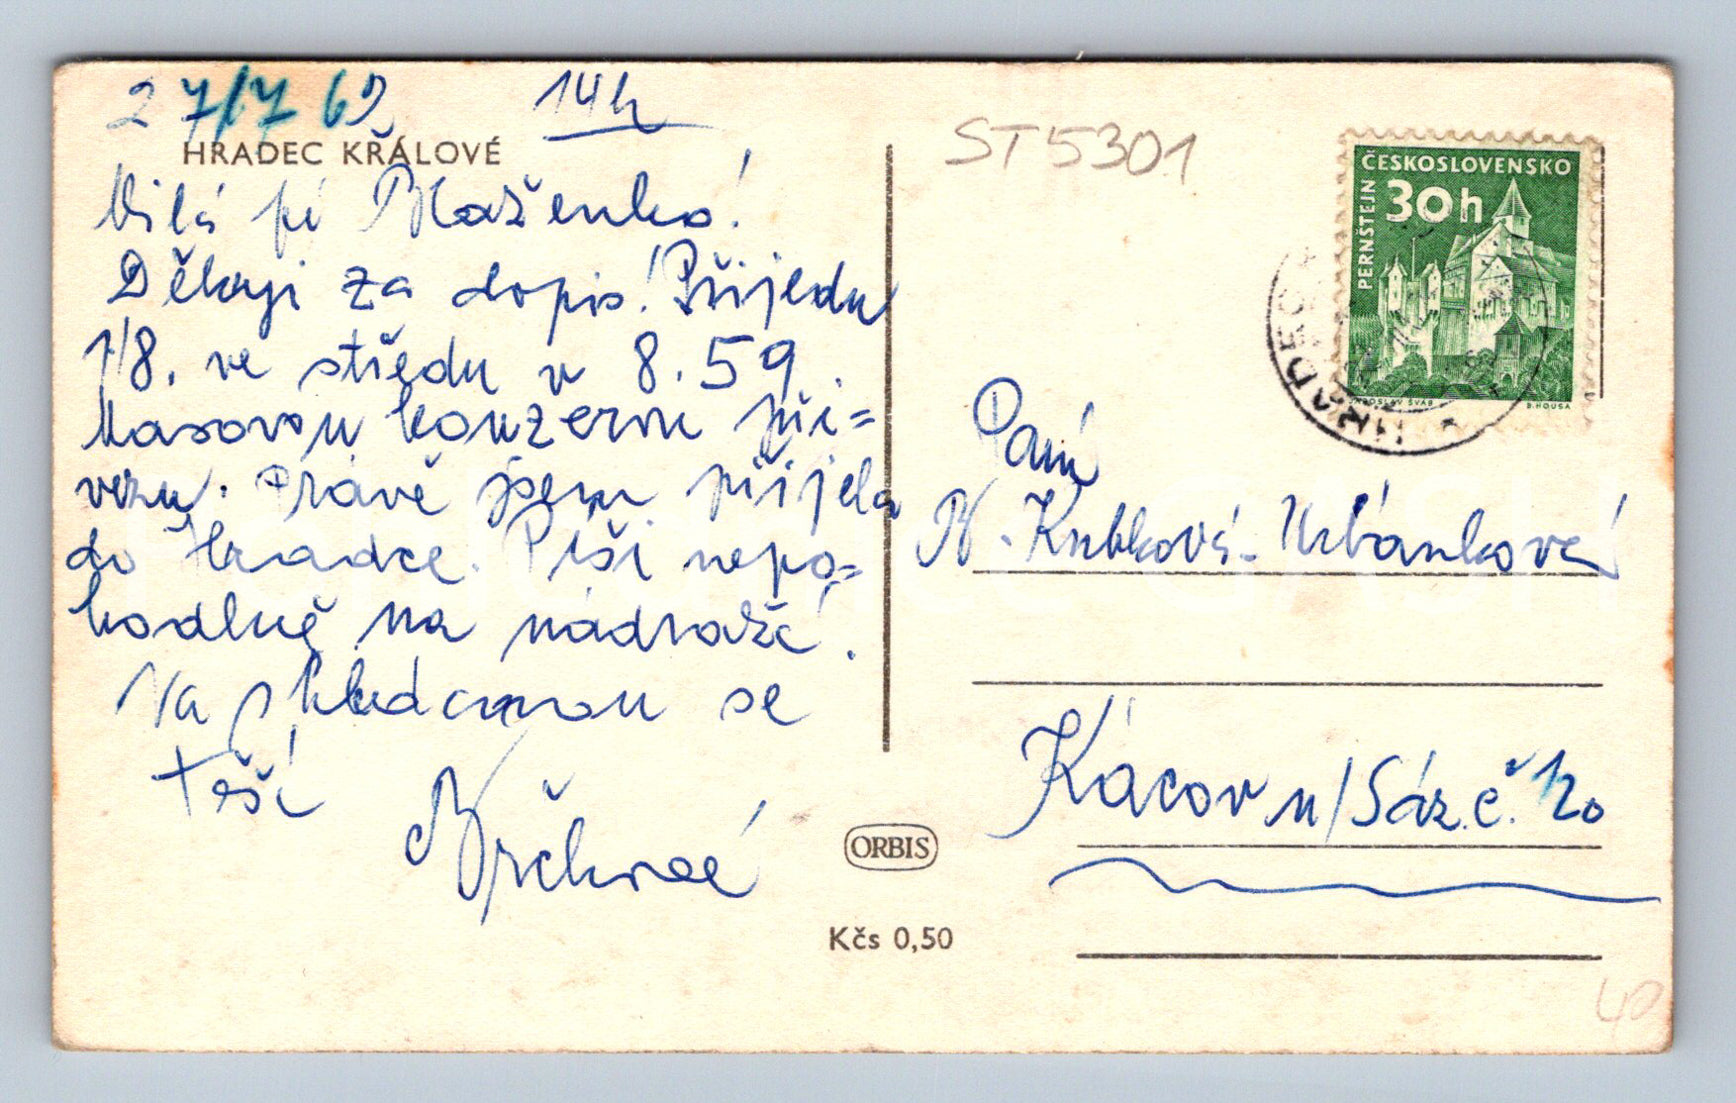 27/7 62 14h
HRADEC KRÁLOVÉ
Milá pí Mařenko!
Děkuji za dopis! Přijedu
1/8. ve středu v 8.59.
Masovou konzervu při=
vezu. Právě jsem přijela
do Hradce. Píši nepo=
hodlně na nádraží.
Na shledanou se
těší
ST5301
ČESKOSLOVENSKO
30h
PERNŠTEJN
JAROSLAV ŠVÁB
B. HOUSA
HRADEC K
Paní
M. Kubková-Urbánková
Kácov n/Sáz. č. 120
ORBIS
Kčs 0,50
40